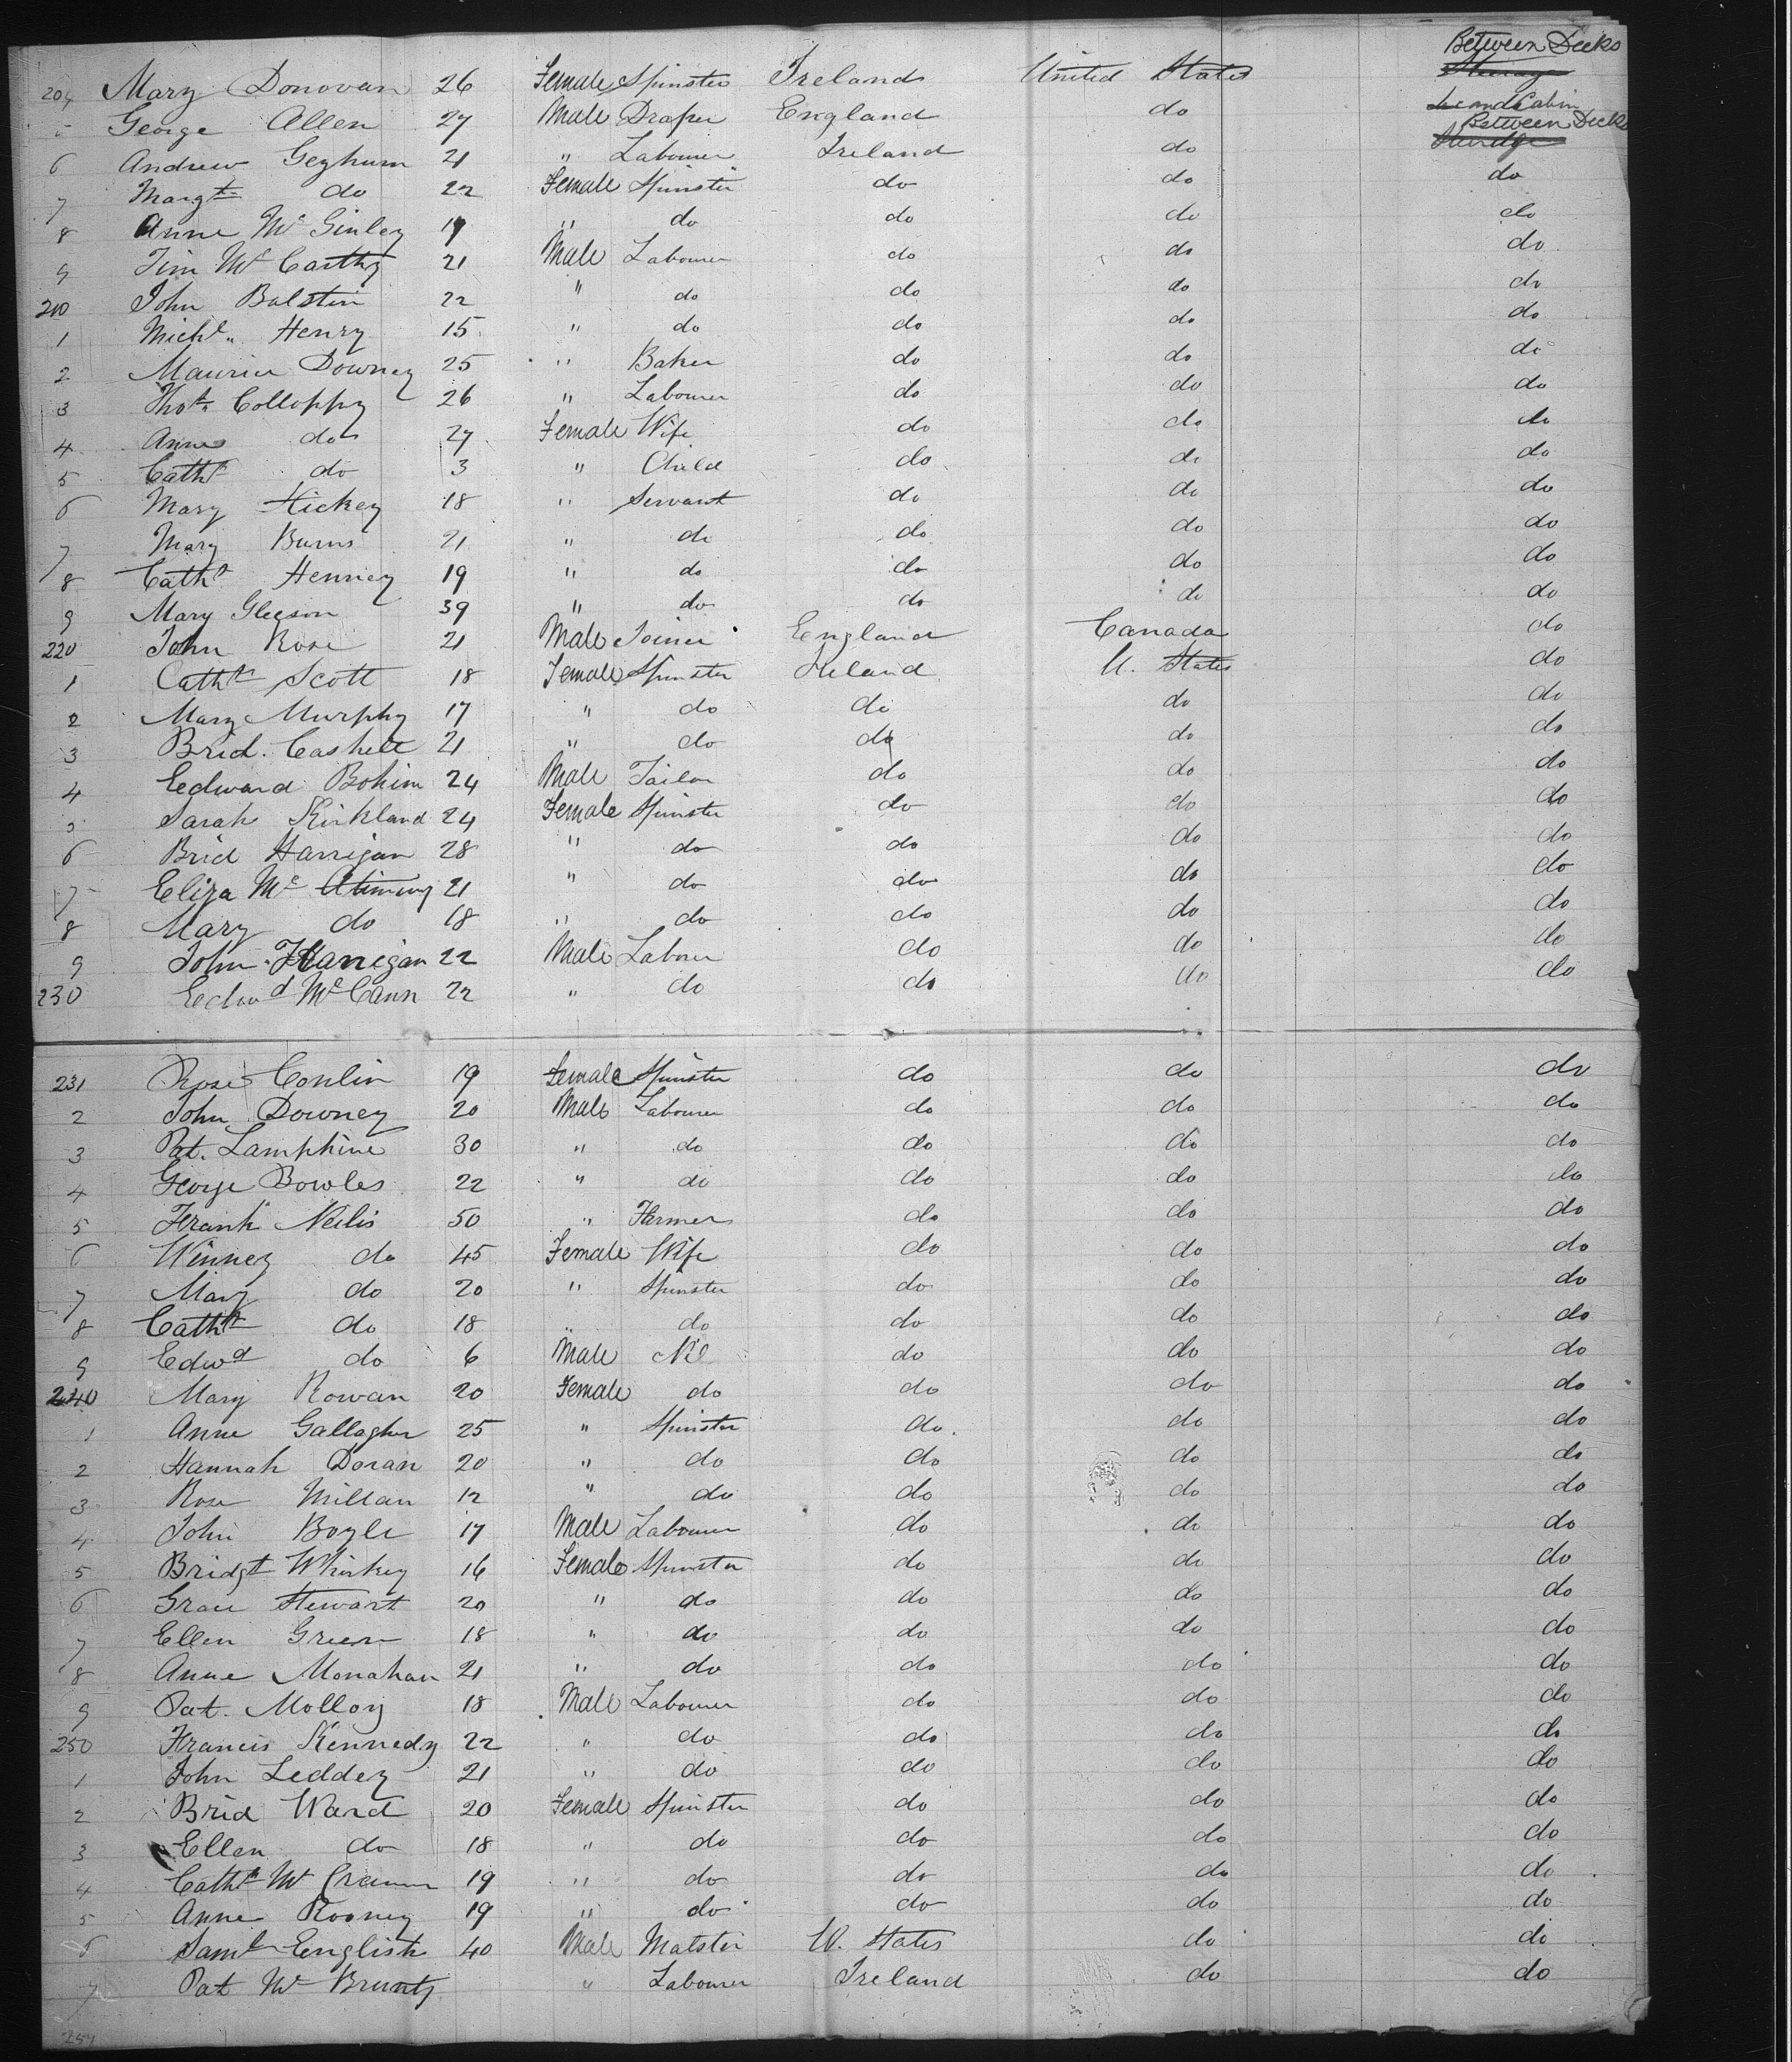 Between Decks
204 Mary Donovan 26 Female Spinster Ireland United States Steerage
5 George Allen 27 Male Draper England do Second Cabin
Between Decks
6 Andrew Geghum 21 " Labourer Ireland do Steerage
7 Margt do 22 Female Spinster do do do
8 Anne Mc Ginley 19 " do do do do
9 Tim Mc Carthy 21 Male Labourer do do do
210 John Balstin 22 " do do do do
1 Michl. Henry 15 " do do do do
2 Maurice Downey 25 " Baker do do do
3 Thos. Colloppy 26 " Labourer do do do
4 Anne do 27 Female Wife do do do
5 Cathe do 3 " Child do do do
6 Mary Hickey 18 " Servant do do do
7 Mary Burns 21 " do do do do
8 Cathe Henney 19 " do do do do
9 Mary Gleeson 39 " do do do do
220 John Rose 21 Male Joiner England Canada do
1 Cathe Scott 18 Female Spinster Ireland U. States do
2 Mary Murphy 17 " do do do do
3 Brid. Cashell 21 " do do do do
4 Edward Bohim 24 Male Tailor do do do
5 Sarah Kirkland 24 Female Spinster do do do
6 Brid Harrigan 28 " do do do do
7 Eliza Mc 21 " do do do do
8 Mary do 18 " do do do do
9 John Flanigan 22 Male Labourer do do do
230 Edwd Mc Cann 22 " do do do do
231 Rose Conlin 19 Female Spinster do do do
2 John Downey 20 Male Labourer do do do
3 Pat. Lamphine 30 " do do do do
4 George Bowles 22 " do do do do
5 Frank Neilis 50 " Farmer do do do
6 Winney do 45 Female Wife do do do
7 Mary do 20 " Spinster do do do
8 Cathe do 18 " do do do do
9 Edwd do 6 Male Nil do do do
240 Mary Rowan 20 Female do do do do
1 Anne Gallagher 25 " Spinster do do do
2 Hannah Doran 20 " do do do do
3 Rose Millan 12 " do do do do
4 John Boyle 17 Male Labourer do do do
5 Bridgt Whiskey 16 Female Spinster do do do
6 Grace Stewart 20 " do do do do
7 Ellen Green 18 " do do do do
8 Anne Monahan 21 " do do do do
9 Pat. Molloy 18 Male Labourer do do do
250 Francis Kennedy 22 " do do do do
1 John Leddey 21 " do do do do
2 Brid Ward 20 Female Spinster do do do
3 Ellen do 18 " do do do do
4 Cathe Mc 19 " do do do do
5 Anne Rooney 19 " do do do do
6 Saml English 40 Male Matster U. States do do
7 Pat Mc Brunty " Labourer Ireland do do
257